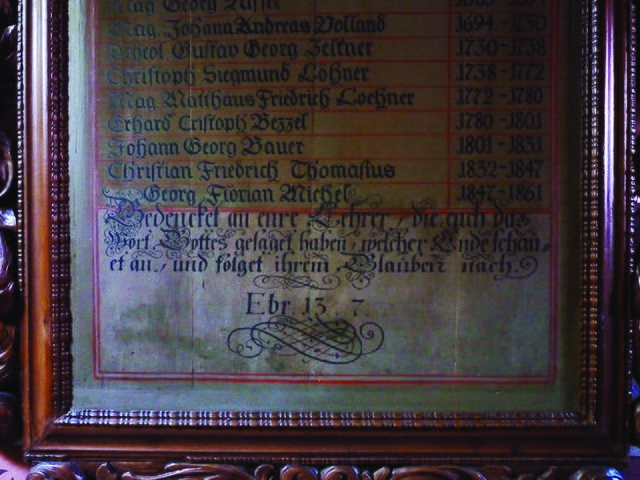 Mag. Georg
Mag. Johann Andreas Volland 1694 - 1730
Gustav Georg Zeltner 1730 - 1738
Christoph Siegmund Löhner 1738 - 1772
Mag. Matthäus Friedrich Lochner 1772 - 1780
Erhard Cristoph Bezzel 1780 - 1801
Johann Georg Bauer 1801 - 1831
Christian Friedrich Thomasius 1832 - 1847
Georg Florian Michel 1847 - 1861
Gedencket an eure Lehrer, die euch das
Wort Gottes gesaget haben, welcher Ende schau-
et an, und folget ihrem Glauben nach.
Ebr. 13. 7.